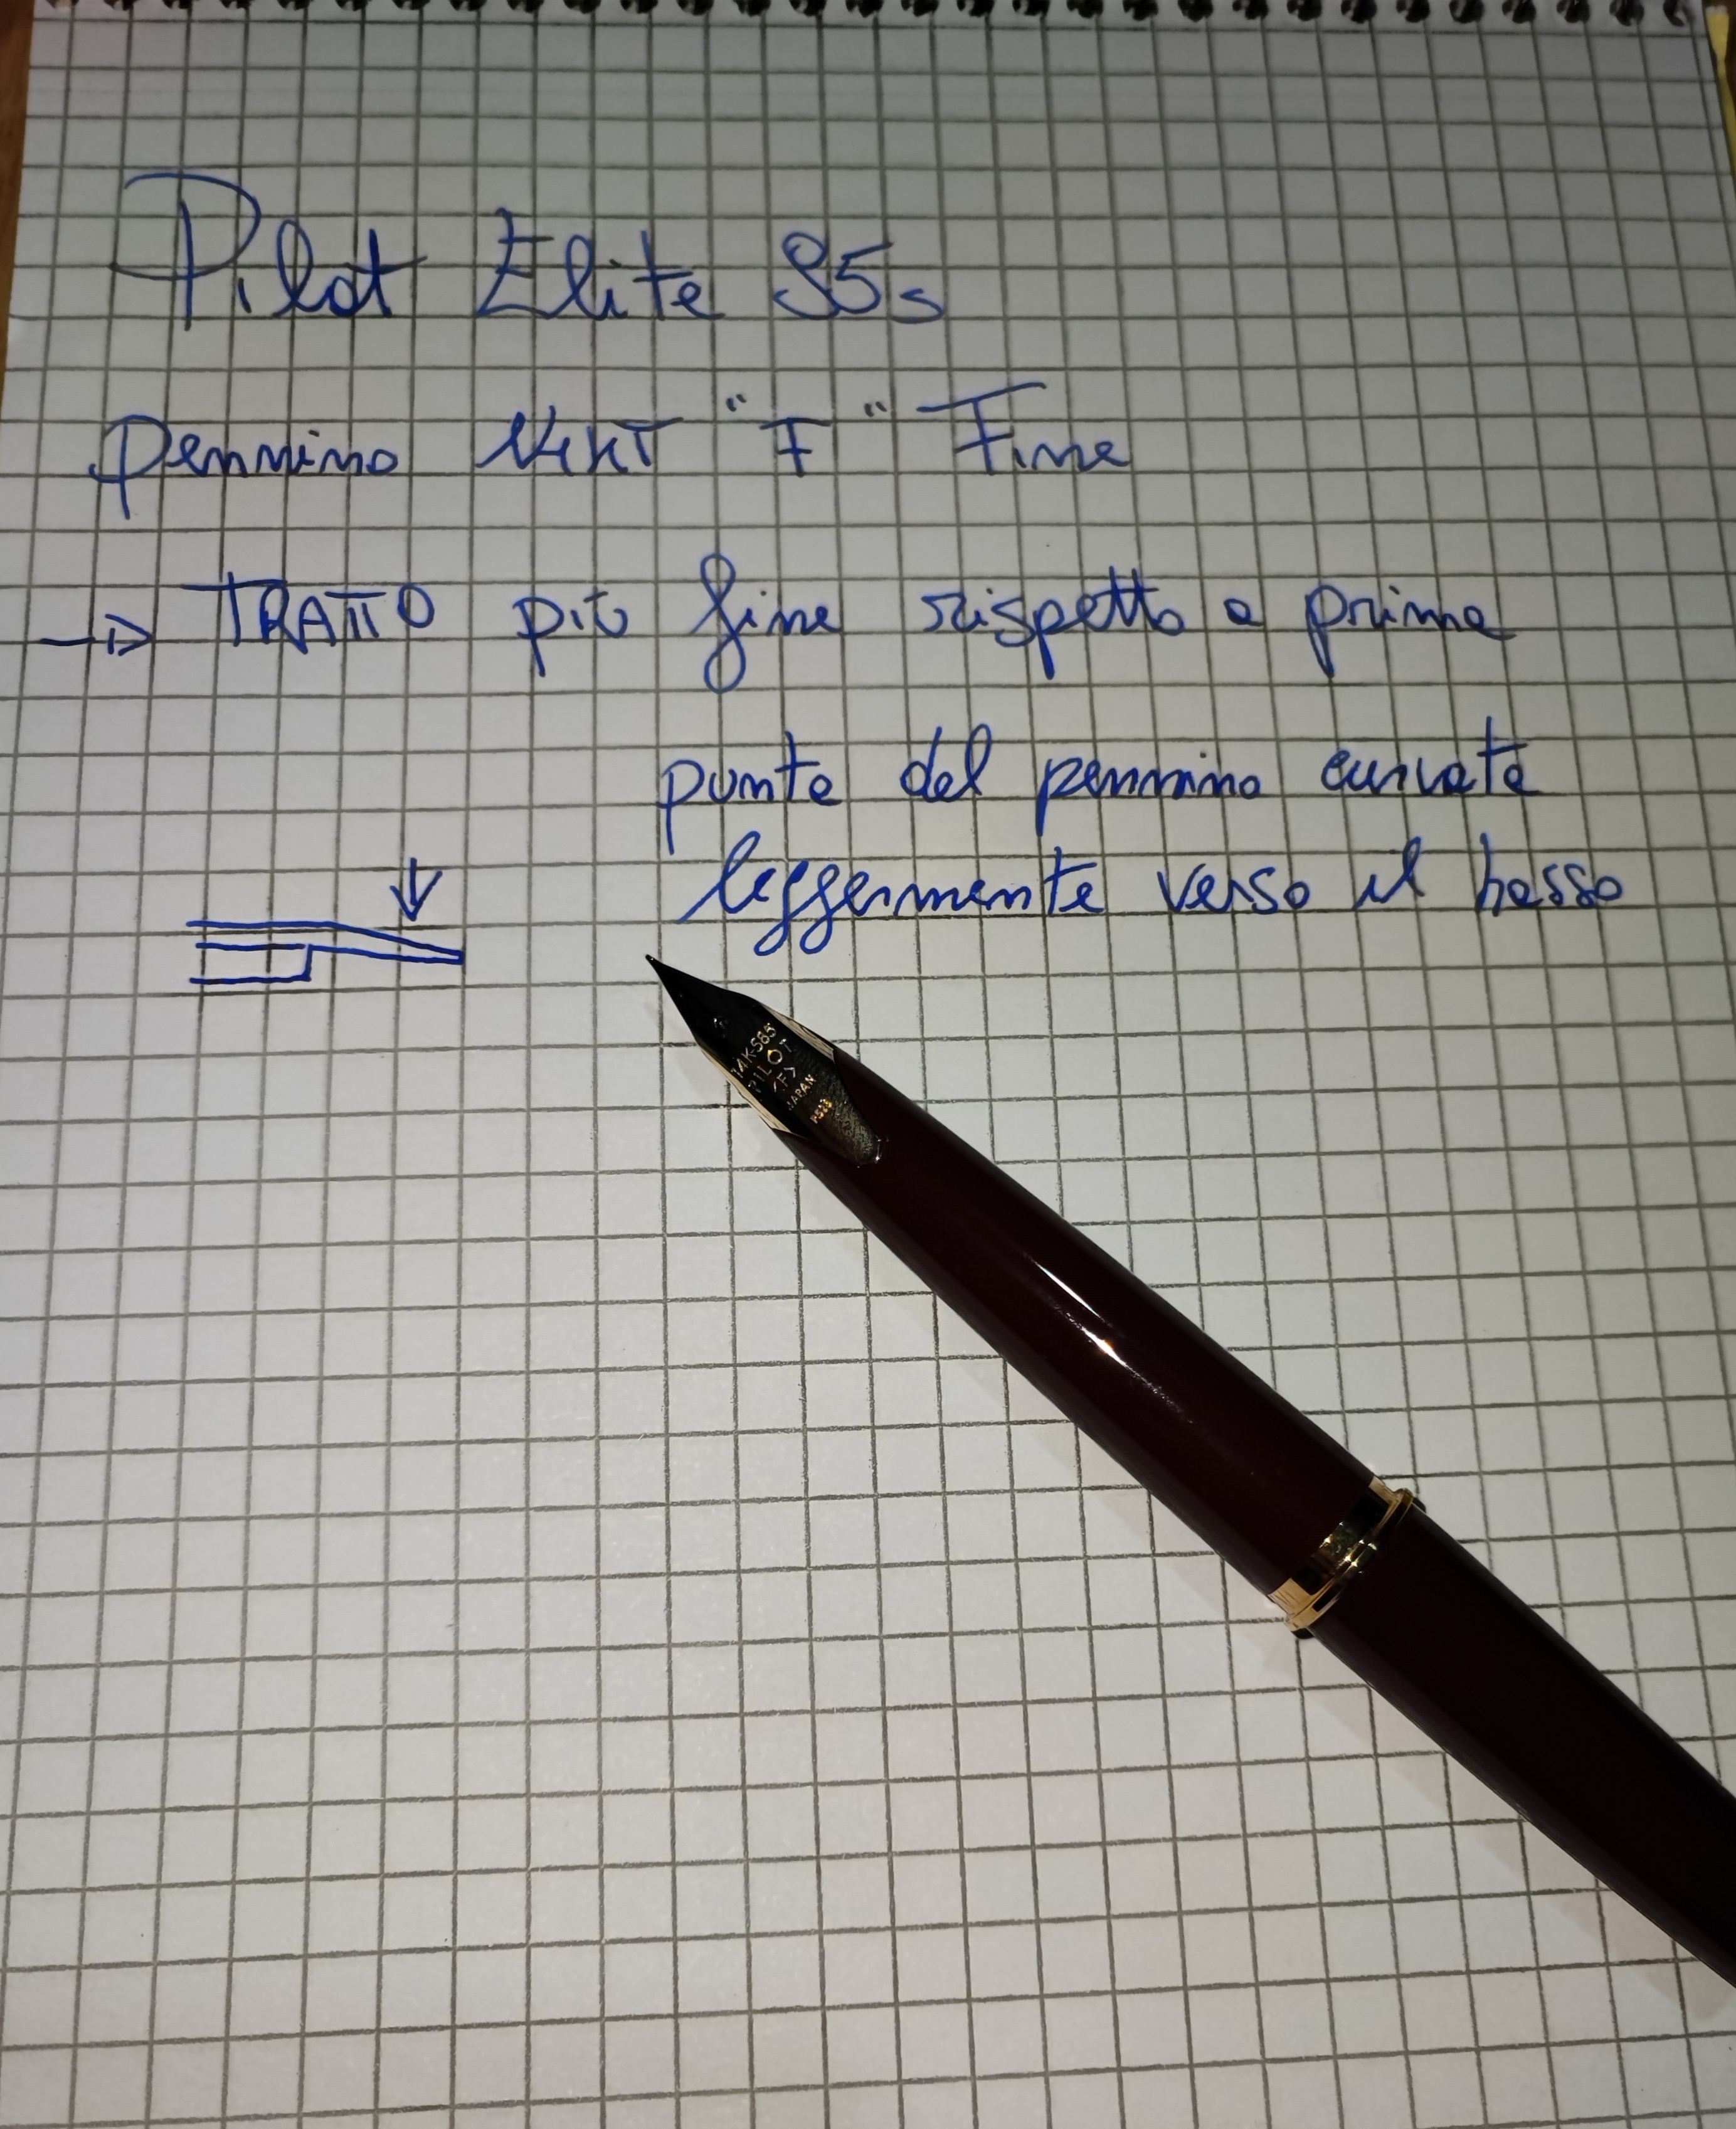 Pilot Elite 95s
Pennino 14KT "F" Fine
→ TRATTO più fine rispetto a prima
punta del pennino curvata
leggermente verso il basso
14K-585
PILOT
<F>
JAPAN